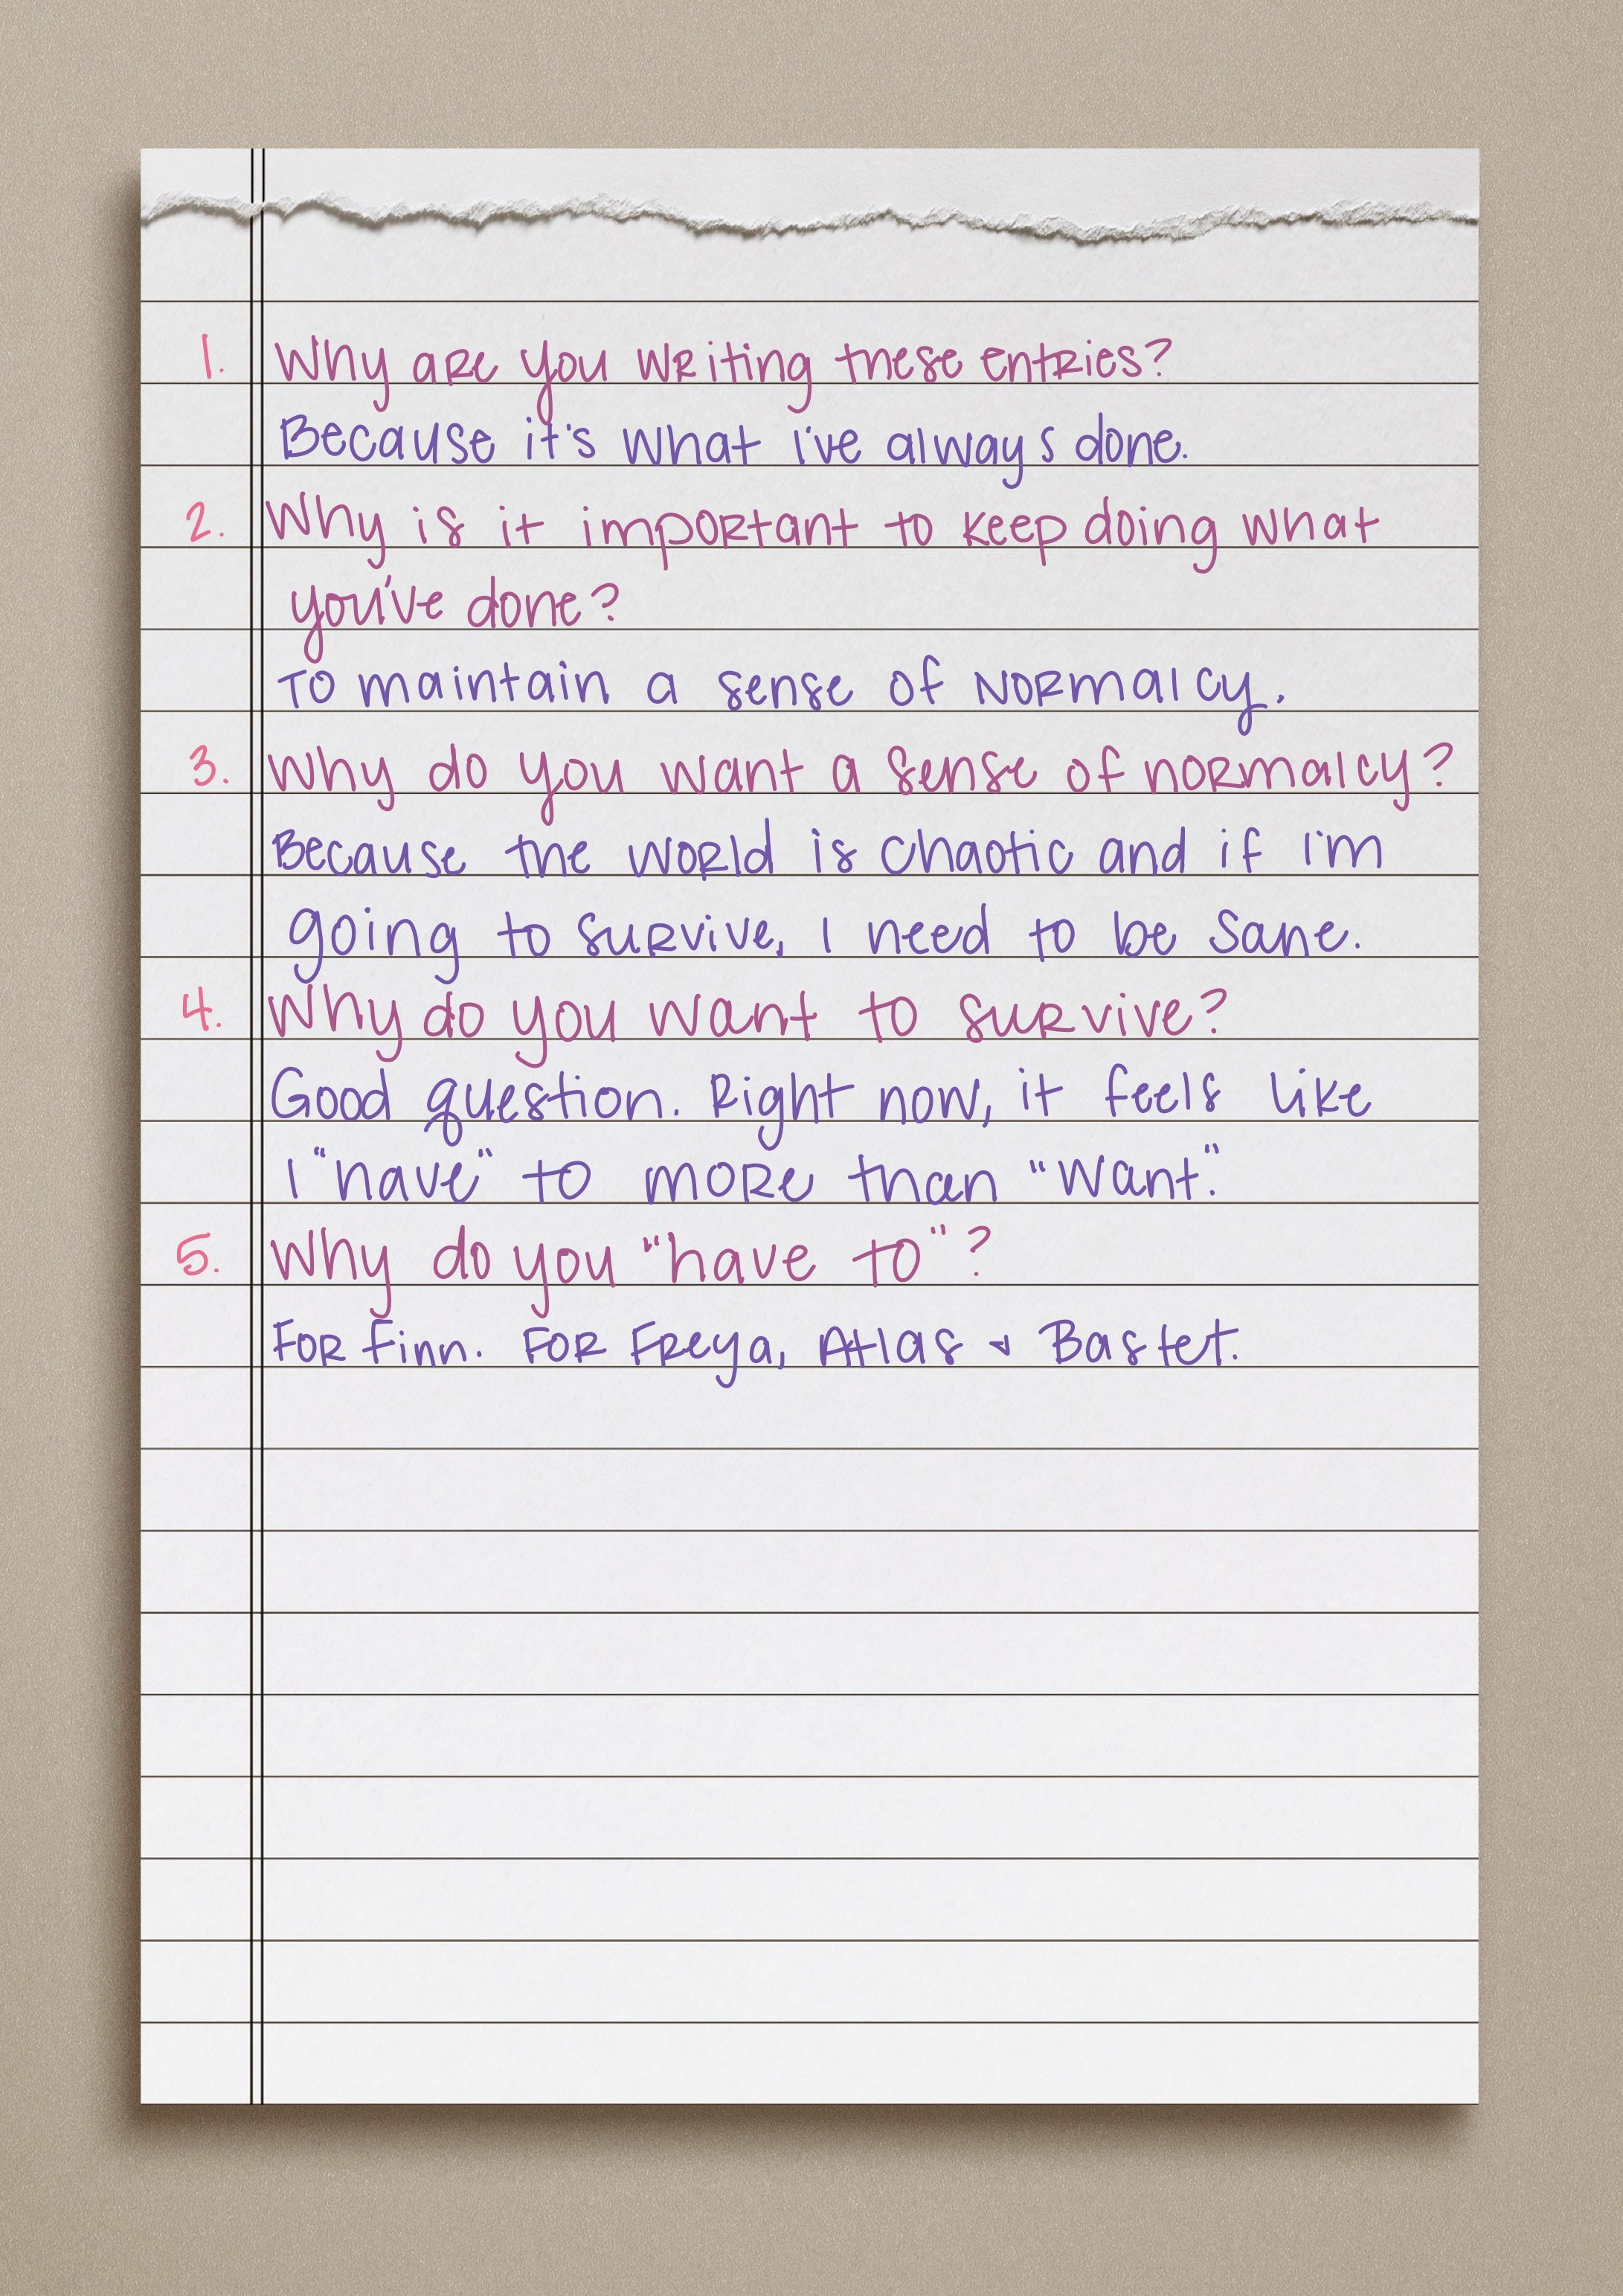 1. Why are you writing these entries?
Because it's what I've always done.
2. Why is it important to keep doing what
you've done?
To maintain a sense of normalcy.
3. Why do you want a sense of normalcy?
Because the world is chaotic and if I'm
going to survive, I need to be sane.
4. Why do you want to survive?
Good question. Right now, it feels like
I "have" to more than "want".
5. Why do you "have to"?
For Finn. For Freya, Atlas & Bastet.